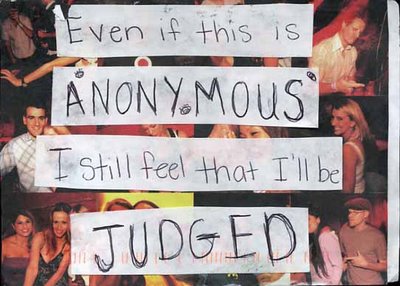 Even if this is
"ANONYMOUS"
I still feel that I'll be
JUDGED